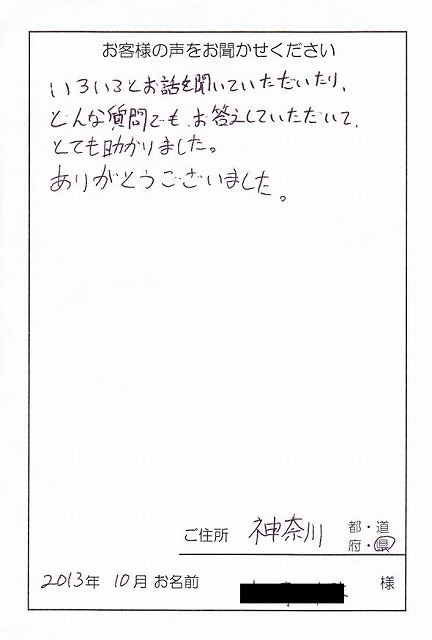 お客様の声をお聞かせください
いろいろとお話を聞いていただいたり、
どんな質問でも、お答えしていただいて、
とても助かりました。
ありがとうございました。
ご住所 神奈川 都・道
府・県
2013年 10月 お名前 様